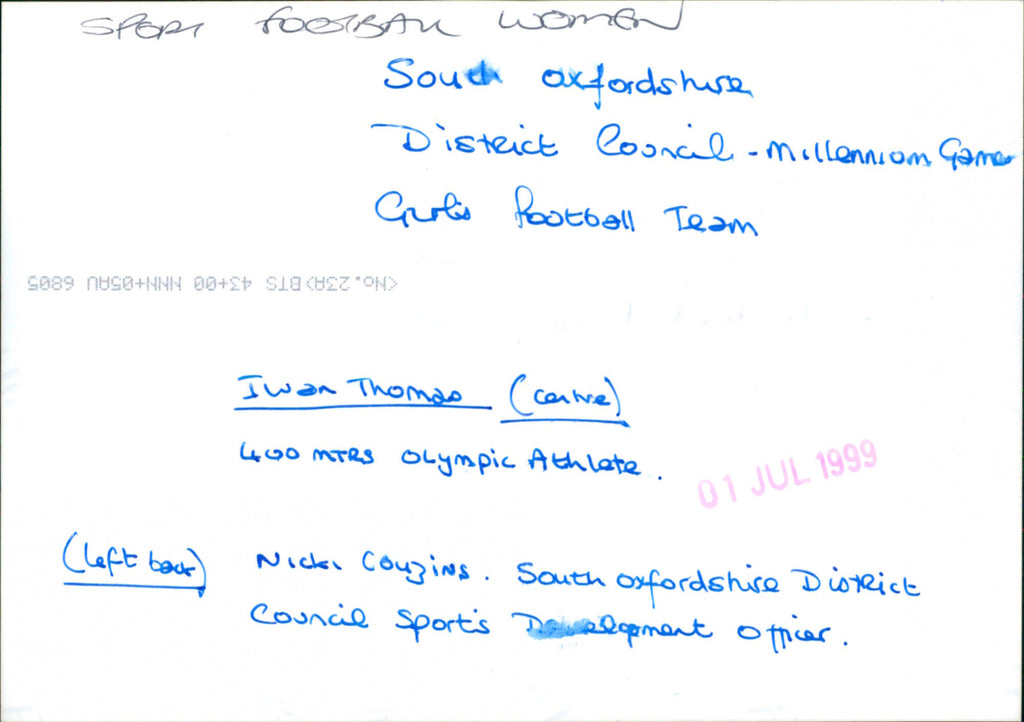 SPORT FOOTBALL WOMEN
South Oxfordshire
District Council - Millennium Games
Girls football Team
<No.23A>BTS 43+00 NNN+05AU 6805
Iwan Thomas (centre)
400 MTRS Olympic Athlete.
01 JUL 1999
(left back) Nicki Couzins. South Oxfordshire District
Council Sports Development Officer.